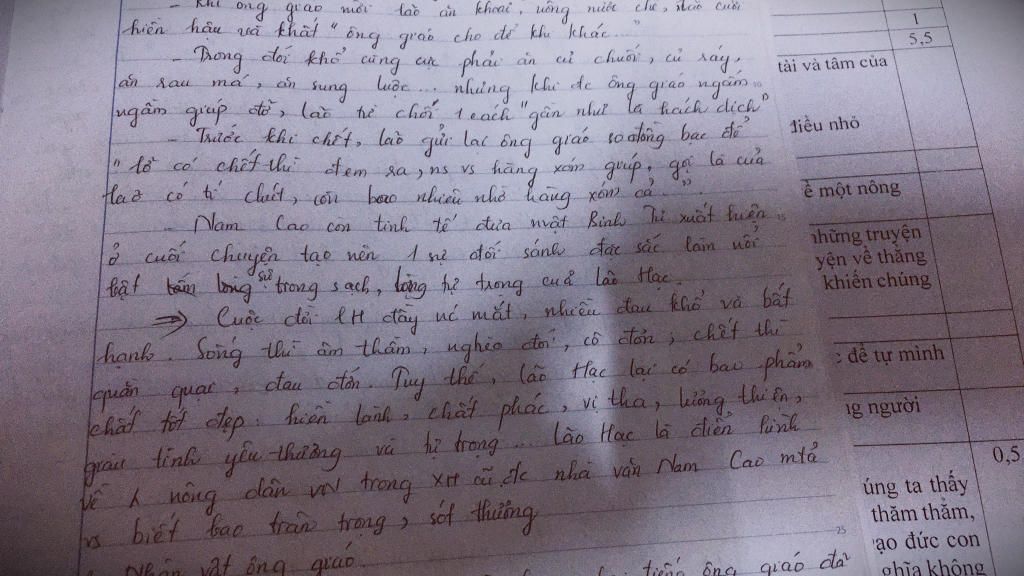 - Khi ông giáo mời lão ăn khoai, uống nước chè, lão cười
hiền hậu và khất "ông giáo cho để khi khác..."
- Trong đói khổ cùng cực phải ăn củ chuối, củ ráy,
ăn rau má, ăn sung luộc... nhưng khi đc ông giáo ngấm
ngầm giúp đỡ, lão từ chối 1 cách "gần như là hách dịch"
- Trước khi chết, lão gửi lại ông giáo số đồng bạc để
"lỡ có chết thì đem ra, ns vs hàng xóm giúp, gọi là của
lão có tí chút, còn bao nhiêu nhờ hàng xóm cả"
- Nam Cao còn tinh tế đưa nvật Binh Tư xuất hiện
ở cuối chuyện tạo nên 1 sự đối sánh đặc sắc làm nổi
bật sự trong sạch, lòng tự trọng của lão Hạc.
=> Cuộc đời LH đầy nc mắt, nhiều đau khổ và bất
hạnh. Sống thì âm thầm, nghèo đói, cô đơn, chết thì
quằn quại, đau đớn. Tuy thế, lão Hạc lại có bao phẩm
chất tốt đẹp: hiền lành, chất phác, vị tha, lương thiện,
giàu tình yêu thương và tự trọng... Lão Hạc là điển hình
về nông dân VN trong XH cũ, đc nhà văn Nam Cao mtả
vs biết bao trân trọng, xót thương
Nhân vật ông giáo.
tiếng ông giáo đã
1
5,5
tài và tâm của
điều nhỏ
ề một nông
những truyện
yện về thằng
khiến chúng
để tự mình
ng người
0,5
úng ta thấy
thăm thẳm,
ạo đức con
nghĩa không
25